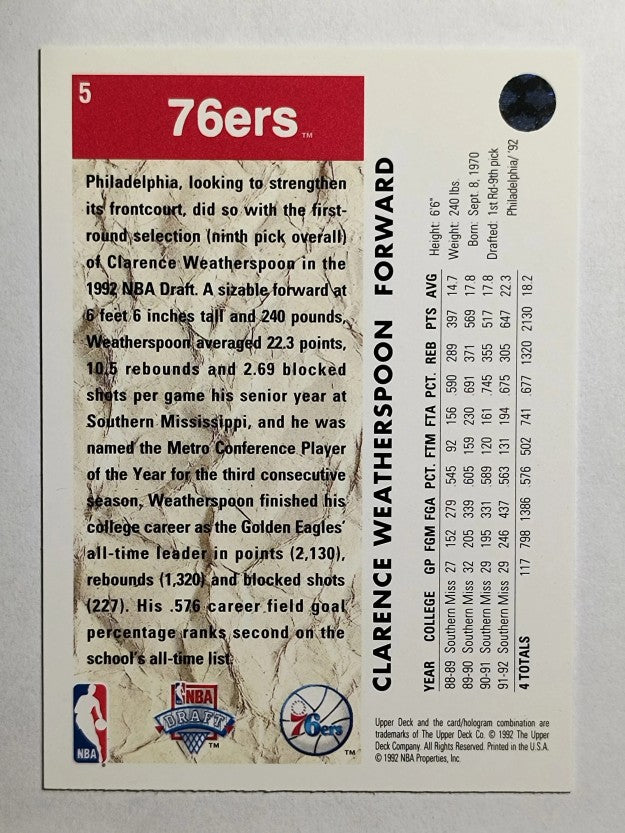 5
76ers™
Philadelphia, looking to strengthen
its frontcourt, did so with the first-
round selection (ninth pick overall)
of Clarence Weatherspoon in the
1992 NBA Draft. A sizable forward at
6 feet 6 inches tall and 240 pounds,
Weatherspoon averaged 22.3 points,
10.5 rebounds and 2.69 blocked
shots per game his senior year at
Southern Mississippi, and he was
named the Metro Conference Player
of the Year for the third consecutive
season, Weatherspoon finished his
college career as the Golden Eagles'
all-time leader in points (2,130),
rebounds (1,320) and blocked shots
(227). His .576 career field goal
percentage ranks second on the
school's all-time list.
NBA
NBA
DRAFT™
76ers™
CLARENCE WEATHERSPOON FORWARD
Height: 6'6"
Weight: 240 lbs.
Born: Sept. 8, 1970
Drafted: 1st Rd-9th pick
Philadelphia/ '92
YEAR COLLEGE GP FGM FGA PCT. FTM FTA PCT. REB PTS AVG
88-89 Southern Miss 27 152 279 .545 92 156 .590 289 397 14.7
89-90 Southern Miss 32 205 339 .605 159 230 .691 371 569 17.8
90-91 Southern Miss 29 195 331 .589 120 161 .745 355 517 17.8
91-92 Southern Miss 29 246 437 .563 131 194 .675 305 647 22.3
4 TOTALS 117 798 1386 .576 502 741 .677 1320 2130 18.2
Upper Deck and the card/hologram combination are
trademarks of The Upper Deck Co. © 1992 The Upper
Deck Company. All Rights Reserved. Printed in the U.S.A.
© 1992 NBA Properties, Inc.